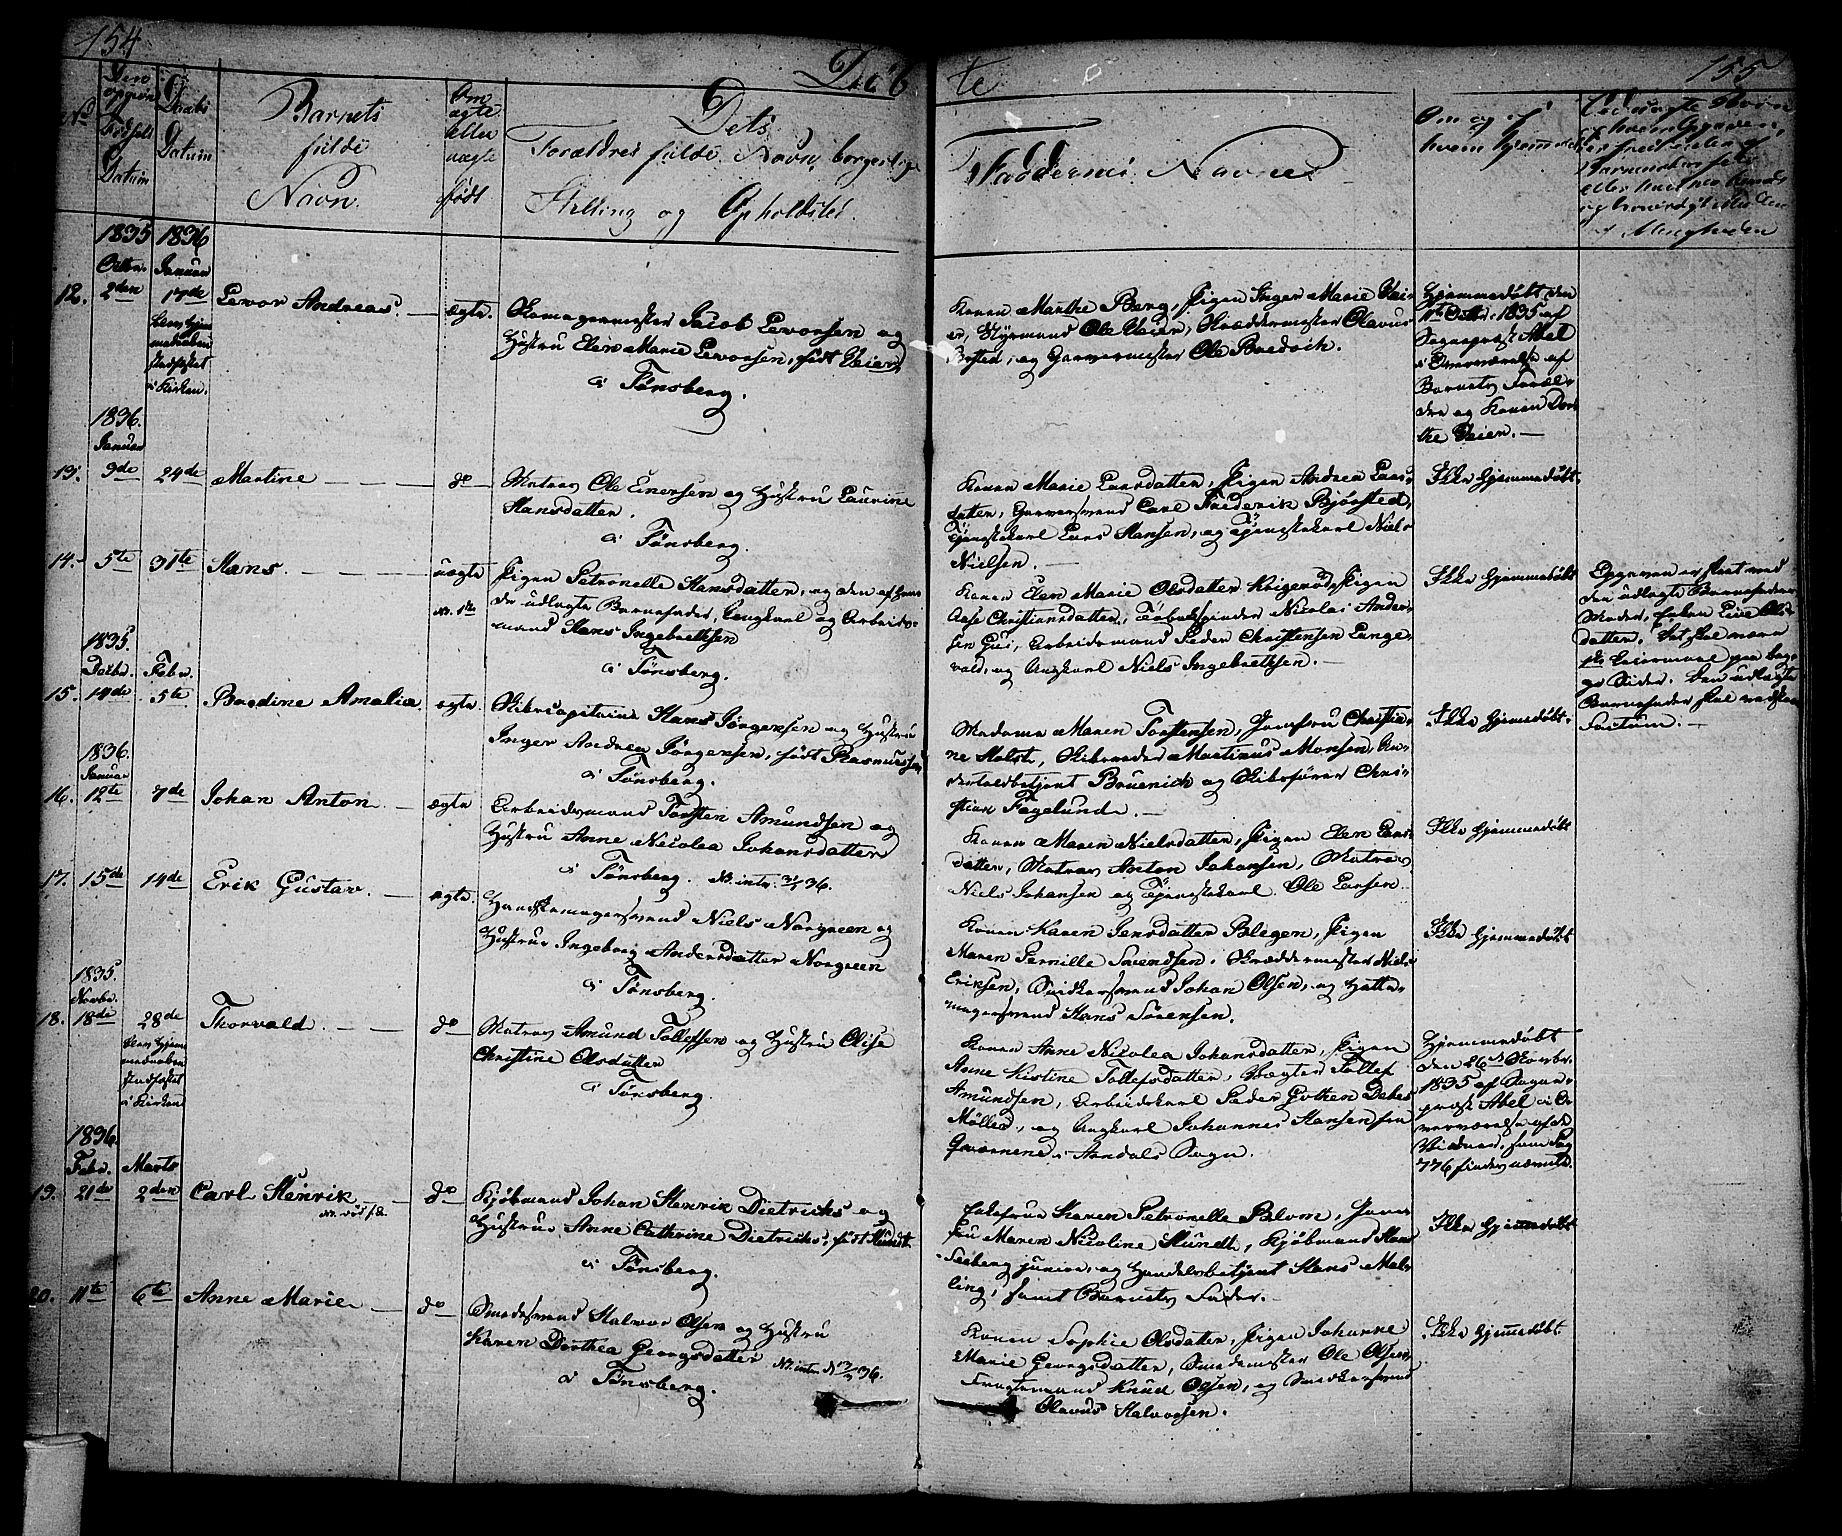 154
Døb
te
155
No
Den
opgivne
Fødsels
Datum
Daabs
Datum
Barnets
fulde
Navn.
Om
ægte
eller
uægte
født
Dets
Forældres fulde Navn, borgerlige
Stilling og Opholdsted.
Faddernes Navne
Om og af
hvem hjemmedøbt
1835
Octbr.
12.
2den
1836
Januar
17de
blev hjem-
medaaben
stadfæstet
i Kirken.
Levor Andreas. —
ægte.
Skomagermester Jacob Levorsen og
Hustru Elen Marie Levorsen, født Veier,
i Tønsberg.
Konen Marthe Berg, Pigen Inger Marie Vei-
er, Styrmand Ole Veier, Skræddermester Olavus
Bysted, og Garvermester Ole Bredvich.
Hjemmedøbt den
Octbr. 1835 af
Sognepræst Abel
i Overværelse af
Barnets Foræl-
dre og Konen Dor-
the Veien. —
1836.
Januar
13.
9de
24de
Martine
do
Matros Ole Enersen og Hustru Laurine
Hansdatter.
i Tønsberg.
Konen Marie Larsdatter, Pigen Andrea Lars-
datter, Garversvend Carl Frederik Bjørsted,
Tjenestekarl Lars Hansen, og Tjenestekarl Niels
Nielsen.
Ikke hjemmedøbt.
14.
5te
31te
Hans.
uægte
No. 1ste
Pigen Petronelle Hansdatter, og den af hen-
de udlagte Barnefader, Ungkarl og Arbeids-
mand Hans Ingebrethsen
i Tønsberg.
Konen Elen Marie Olsdatter Krigerød, Pigen
Aase Christiansdatter, Tobaksspinder Nicolai Ander-
sen Gui, Arbeidsmand Peder Christensen Lange-
vald, og Ungkarl Niels Ingebrethsen. —
Ikke hjemmedøbt
Opgaven er skeet ved
den udlagte Barnefaders
Moder, Enken Live Ols-
datter. Det skal være
1ste Leiermaal paa beg-
ge Sider. Den udlagte
Barnefader skal vedstaae
Factum. —
1835.
Decbr.
15.
14de
Febr.
5te
Berdine Amalia.
ægte.
Skibscapitain Hans Jørgensen og Hustru
Inger Andrea Jørgensen, født Rasmussen
i Tønsberg.
Madame Maren Torstensen, Jomfru Christia-
ne Holst, Skibsreder Martinus Monsen, Un-
dertoldbetjent Bruenich og Skibsfører Chri-
stian Fagelund. —
Ikke hjemmedøbt.
1836.
Januar
16.
12te
7de
Johan Anton —
ægte
Arbeidsmand Torsten Amundsen og
Hustru Anne Nicolea Johansdatter
i Tønsberg.
Konen Maren Nielsdatter, Pigen Elen Lars-
datter, Matros Anton Johansen, Matros
Niels Johansen og Tjenestekarl Ole Larsen.
Ikke hjemmedøbt
17.
15de
14de
Erik Gustav. —
ægte.
Handskemagersvend Niels Norgreen og
Hustru Ingeborg Andersdatter Norgreen
i Tønsberg.
Konen Karen Jensdatter Blegen, Pigen
Maren Pernille Svendsen, Skræddermester Niels
Eriksen, Snedkersvend Johan Olsen, og Hatte-
magersvend Hans Sørensen.
Ikke hjemmedøbt
1835.
Novbr.
18.
18de
28de
blev hjem-
medaaben
stadfæstet
i Kirken
Thorvald.
do
Matros Amund Tollefsen og Hustru Elise
Christine Olsdatter
i Tønsberg.
Konen Anne Nicolea Johansdatter, Pigen
Anne Kistine Tollefsdatter, Vægter Tollef
Amundsen, Arbeidskarl Peder Gotken Dakes
Møller, og Ungkarl Johannes Hansen fra
Qværnene i Arndals Sogn.
Hjemmedøbt
den 26de Novbr.
1835 af Sogne-
præst Abel i O-
verværelse af de
Vidner, som Pag
776 findes nævnte.
1836.
Febr.
19.
21de
Marts
2den
Carl Henrik
do
Kjøbmand Johan Henrik Dietrichs og
Hustru Anne Cathrine Dietrichs, født Hundt
i Tønsberg.
Enkefrue Karen Petronelle Blom, Jom-
fru Maren Nicoline Hundt, Kjøbmand Hans
Seeberg junior, og Handelsbetjent Hans Mal-
ling, samt Barnets Fader. —
Ikke hjemmedøbt
20.
11te
6te
Anne Marie —
do
Smedesvend Halvor Olsen og Hustru
Karen Dorthea Georgsdatter
i Tønsberg.
Konen Sophie Olsdatter, Pigen Johanne
Marie Georgsdatter, Smedemester Ole Olsen,
Fragtemand Knud Olsen, og Snedkersvend
Olavus Halvorsen.
Ikke hjemmedøbt